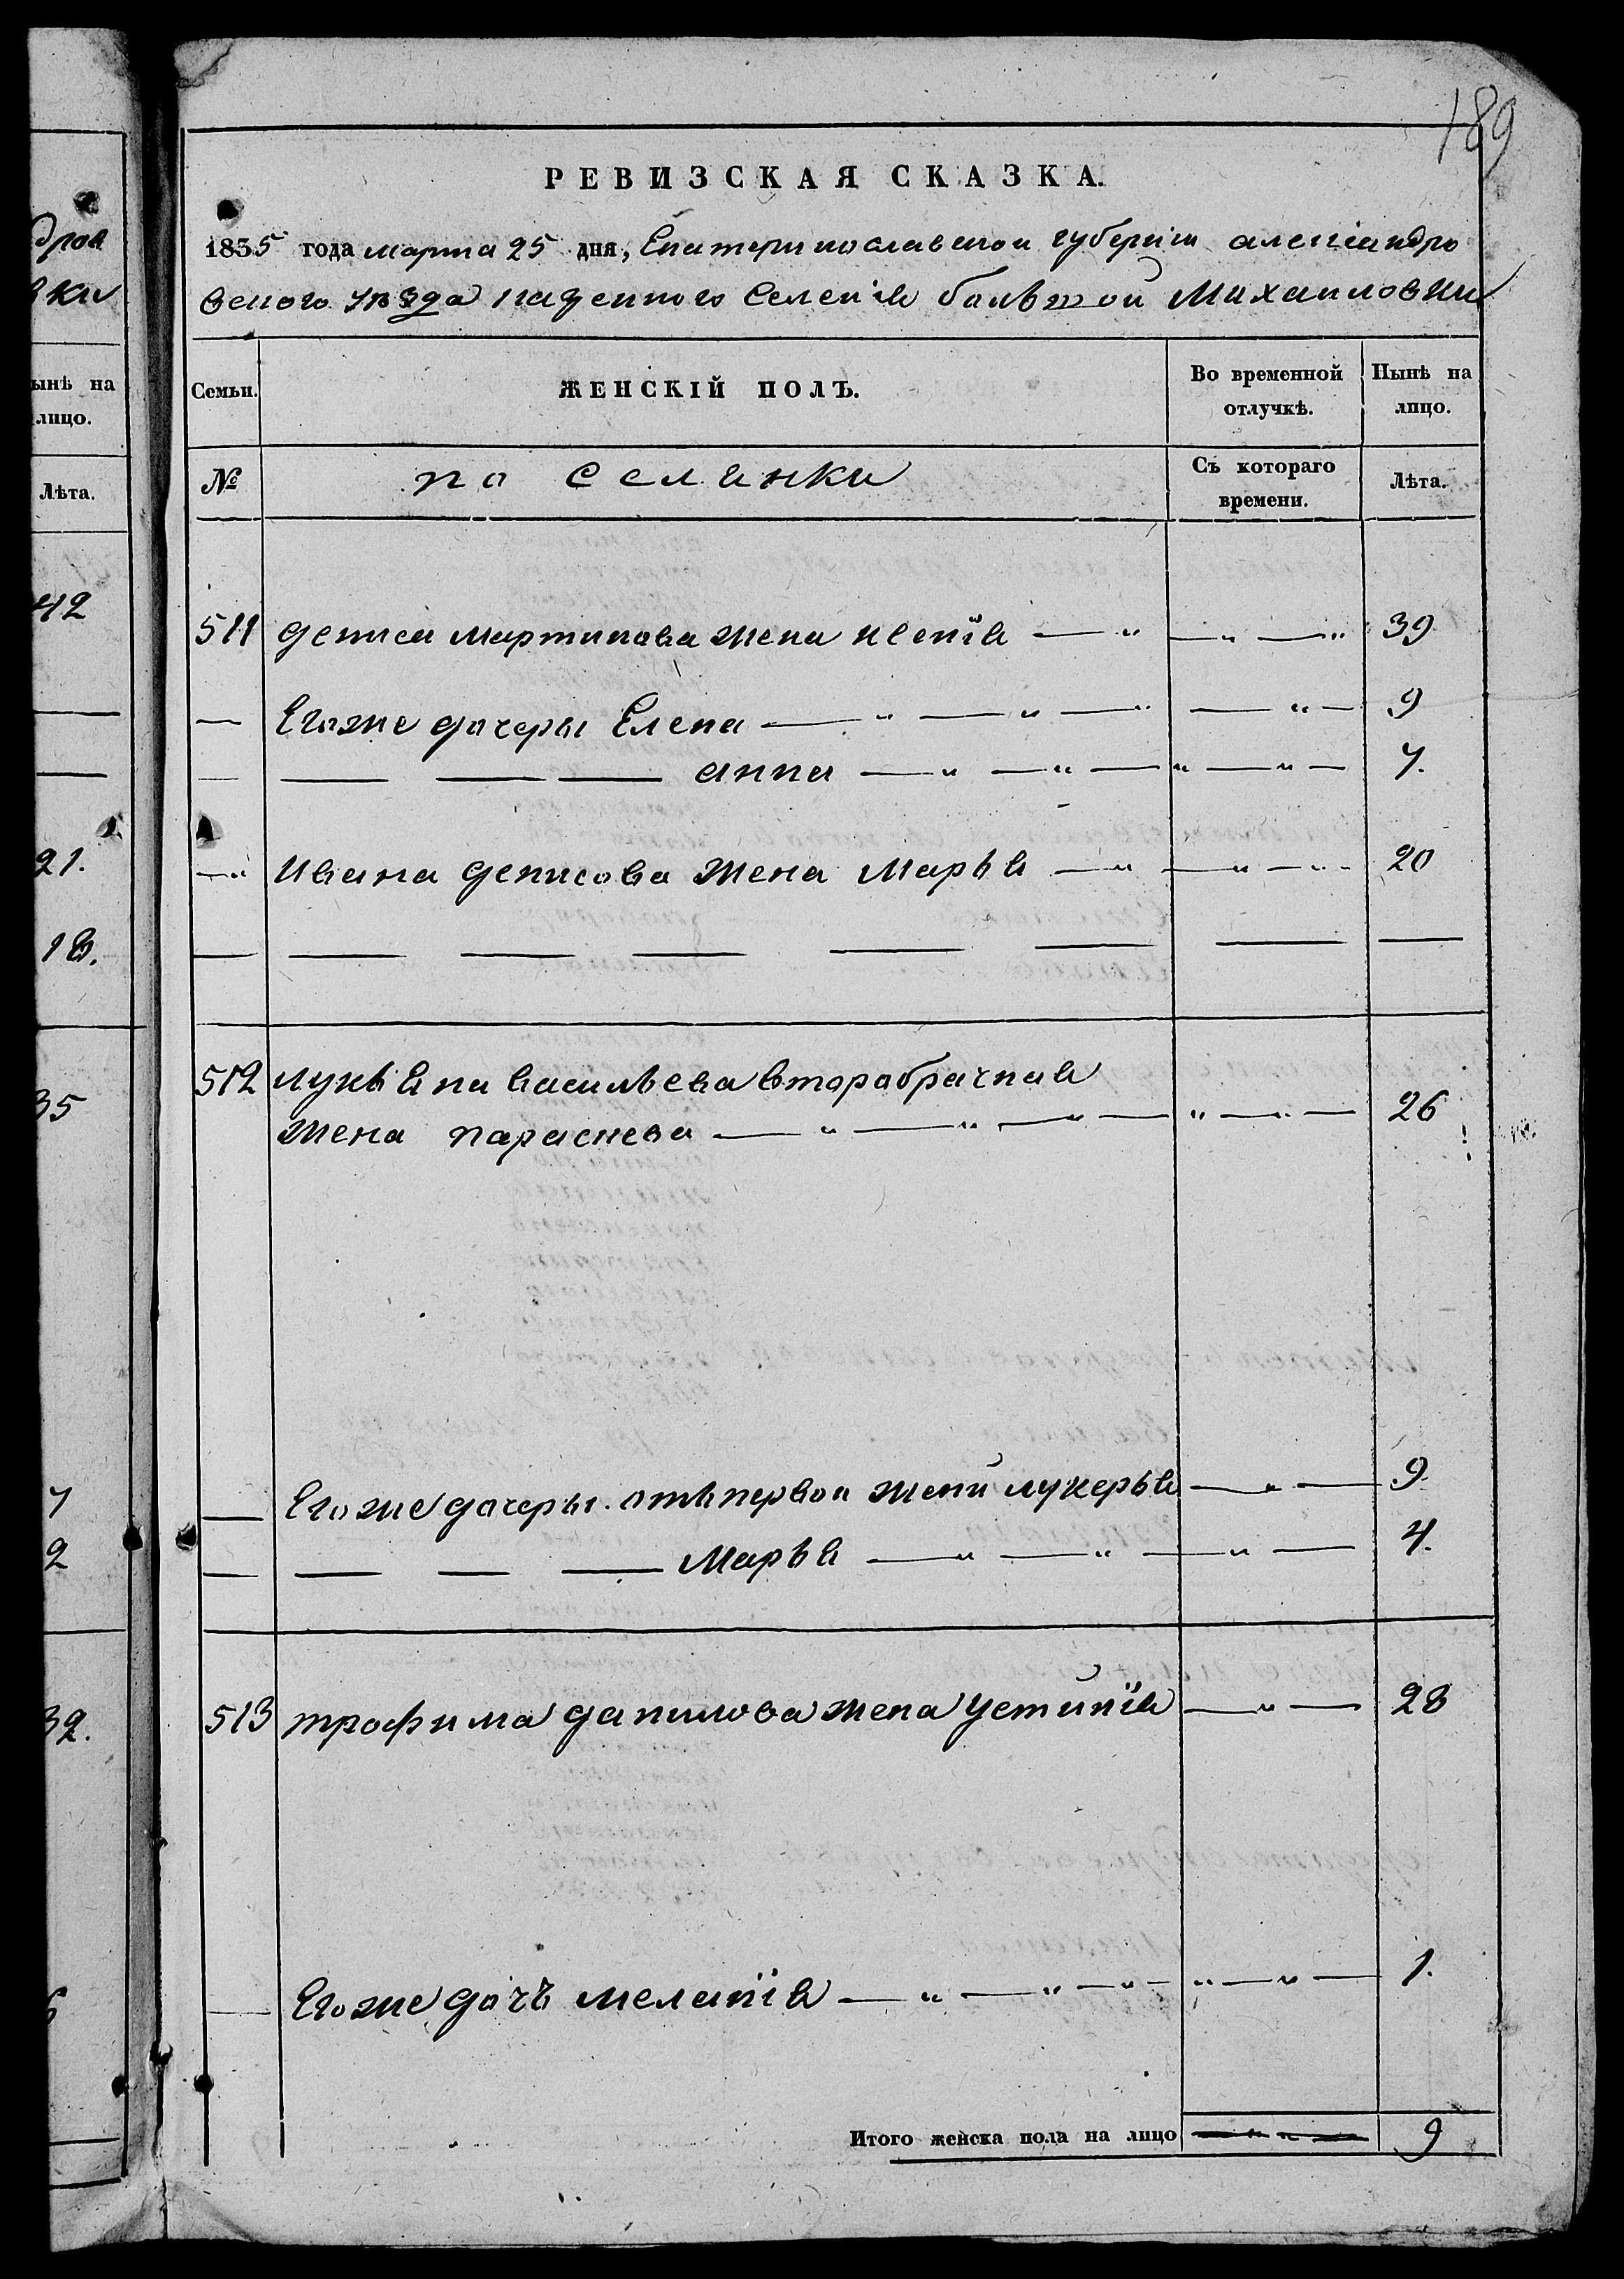 дров
вки
ынѣ на
лицо.
Лѣта.
42
21.
18.
35
7
2
32.
189
РЕВИЗСКАЯ СКАЗКА.
1835 года марта 25 дня, Екатеринославской губерніи александро
вского уѣзда казенного селенія большой Михаиловки
Семьи. ЖЕНСКІЙ ПОЛЪ. Во временной отлучкѣ. Нынѣ на лицо.
№ поселянки Съ котораго времени. Лѣта.
511 дениса мартинова жена ксенія — " — " — " 39
— Егоже дочеры Елена — " — " — " — " — 9
— — — — анна — " — " — " — " — 7.
— " ивана денисова жена Марья — " — " — " 20
— — — — — — — —
512 лукьяна васильева вторабрачная
жена параскева — " — " — " — " — " — 26
— Егоже дочеры отъ первой жени лукерья — " — 9
— — — — Марья — " — " — " — 4.
513 трофима данилова жена устинія — " — 28
— Егоже дочъ меланія — " — " — " — " — " — 1.
Итого женска пола на лицо — " " — 9